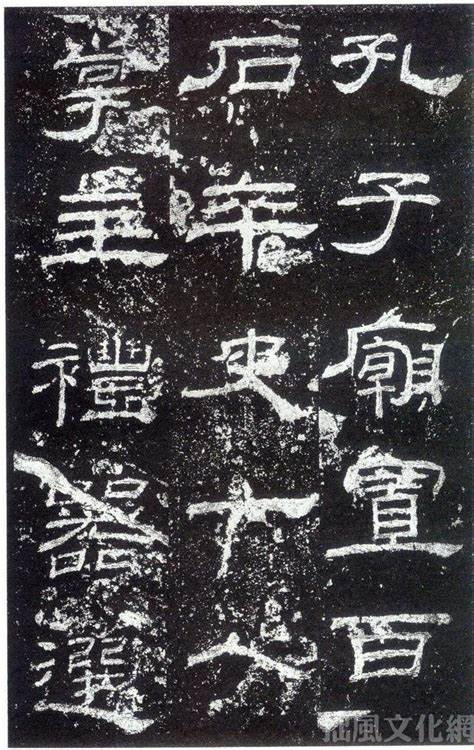 孔子廟置百
石卒史一人
掌主禮器選
拙風文化網